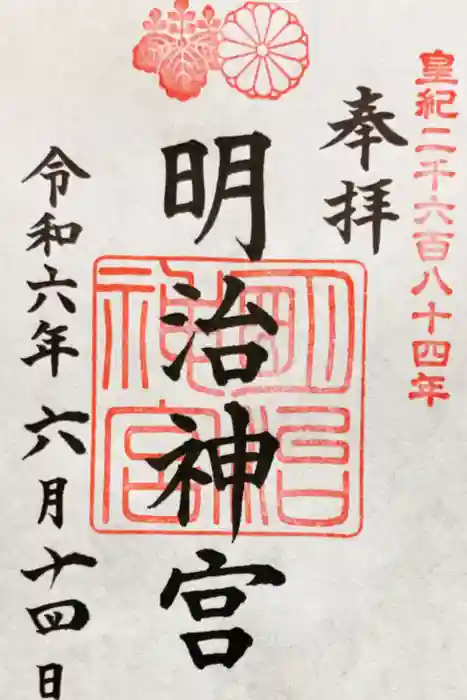 皇紀二千六百八十四年
奉拝
明治神宮
明治神宮
令和六年六月十四日